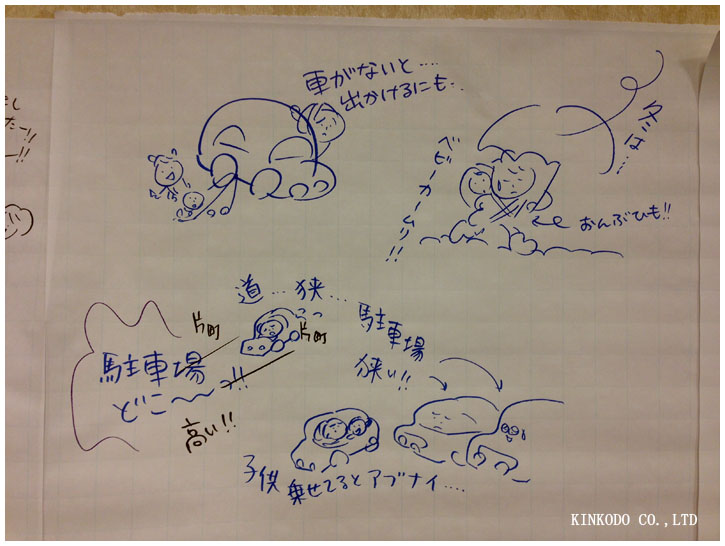 車がないと‥‥
出かけるにも‥
冬は‥‥
ベビーカームリ!!
おんぶひも!!
道‥‥狭‥‥
片町
片町
駐車場
どこ〜〜っ!!
高い!!
駐車場
狭い!!
子供乗せてるとアブナイ‥‥
KINKODO CO.,LTD